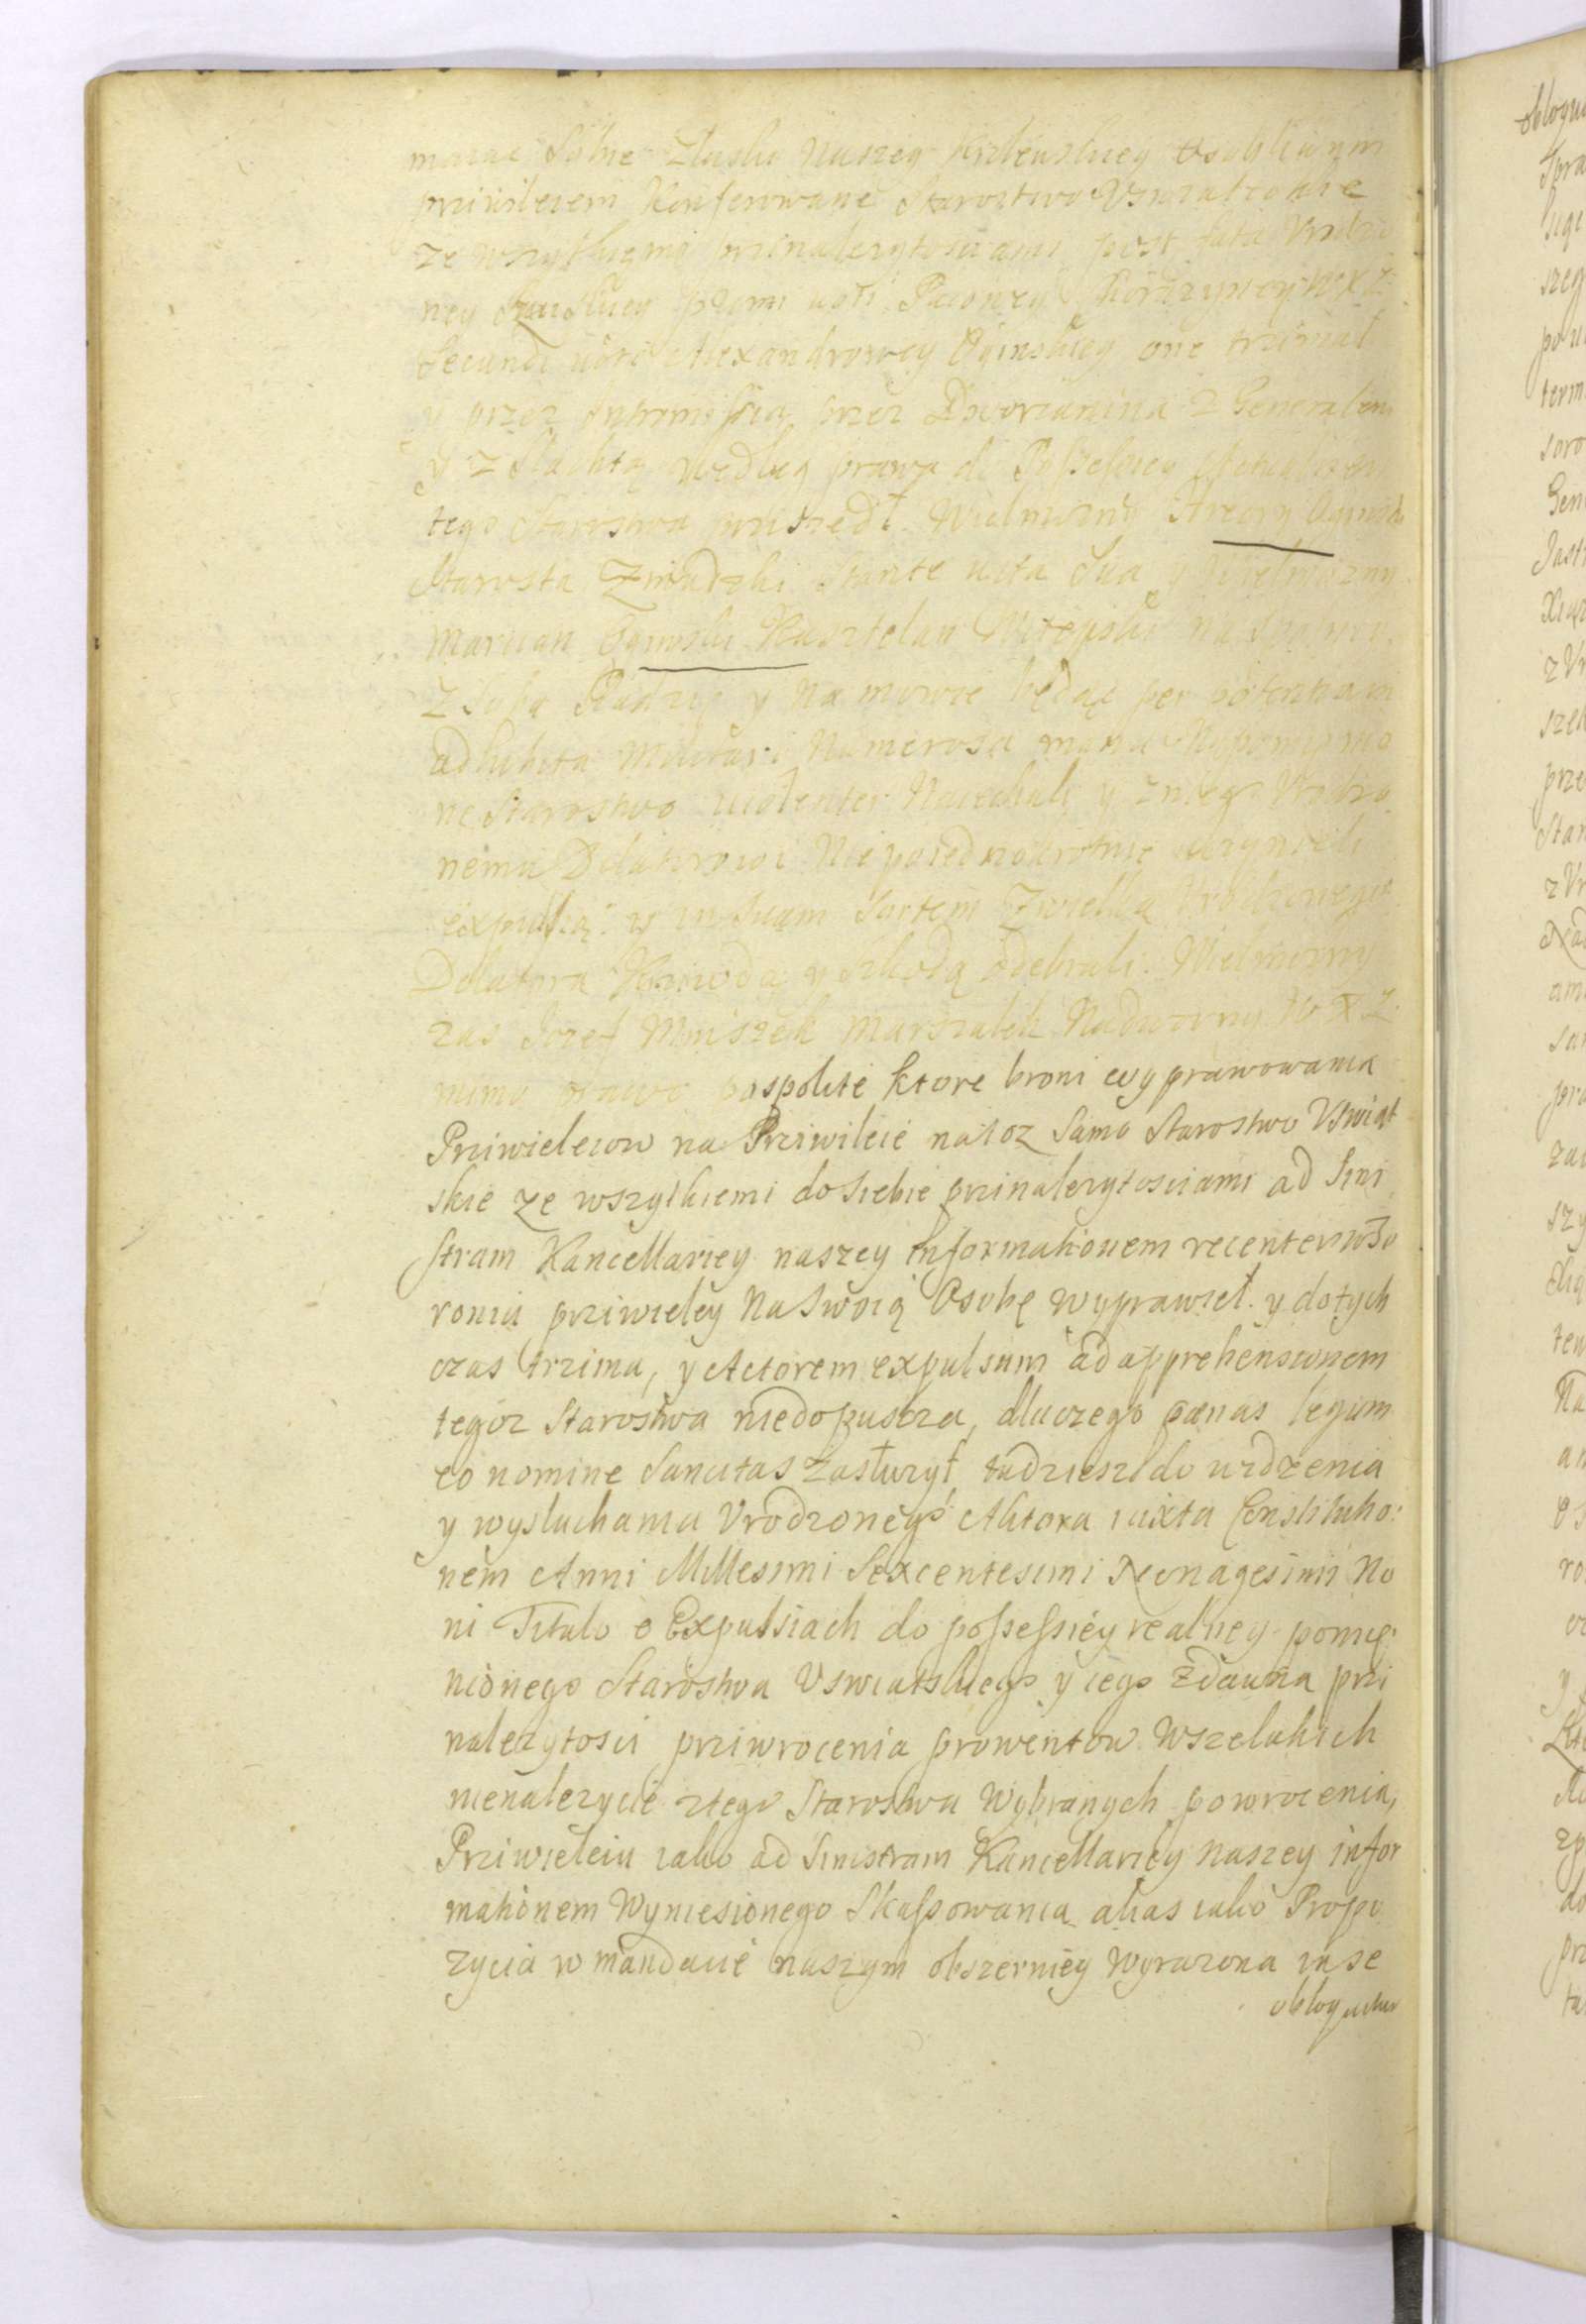 maiąc Sobie Złaski Naszey Krolewskiey osobliwym
prziwileiem Konferowane Starostwo Uswiatskie
ze wszytkiemi przinalezytosciami post fata Vrodzo
ney primi voti Pacowey Chorązyney W X L
Secundi voti Alexandrowey Oginskiey one trzimał
y przez Intromissią przez Dworzanina z Generałem
y z Slachtą według prawa do Possessiey
tego Starostwa przyszedł Wielmozny Hreory Oginski
Starosta Zmudzki Stante vita Sua y Wielmozny
Marcian Oginski Kasztelan Witepski na
z Sobą Radzie y Na mowie będąc per potentiam
adhibita Militari Numerosa manu Napomienio
ne Starostwo violenter Naiechali y zniego Vrodzo
nemu Delatorowi Niepoiednokrotnie uczynieli
expulsią y in Suam Sortem Zwielką Vrodzonego
Delatora Krziwdą y szkodą odebrali. Wielmozny
zas Jozef Mniszek Marszałek Nadworny W X L
mimo prawo pospolite ktore broni wyprawowania
Priwielerow na Prziwileie natoz Samo Starostwo Uswiat
skie ze wszytkiemi do siebie prinalezytosciami ad Sini
stram Kancellariey naszey Informationem recenter
roniu priwieley Na Swoią Osobę wyprawieł y dotych
czas trzima, y Actorem expulsum ad apprehensionem
tegoz Starostwa niedopuscza, dlaczego pœnas legum
eo nomine Sancitas Zasłuzył, tudziesz do uzdzenia
y wysluchania Vrodzonego Aktora iuxta Constitutio:
nem Anni Millesimi Sexcentesimi Nonagesimi No
ni Titulo o Expulsiach do possessiey realney pomię:
nionego Starostwa Uswiatskiego y iego zdawna pri
nalezytosci priwrocenia prowentow Wszelakich
nienalezycie ztego Starostwa Wybranych powrocenia,
Prziwieleiu iako ad Sinistram Kancellariey naszey infor
mationem Wyniesionego Skassowania alias iako Propo
zycia w mandacie naszym obszerniey Wyrazona in se
obloquitur